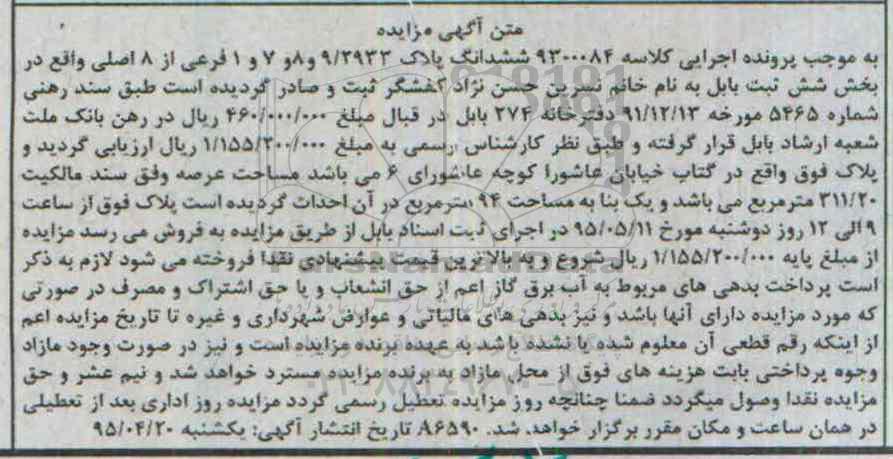 متن آگهی مزایده
به موجب پرونده اجرایی کلاسه ۹۳۰۰۰۸۴ ششدانگ پلاک ۹/۲۹۳۳ و۸و ۷ و ۱ فرعی از ۸ اصلی واقع در
بخش شش ثبت بابل به نام خانم نسرین حسن نژاد کفشگر ثبت و صادر گردیده است طبق سند رهنی
شماره ۵۴۶۵ مورخه ۹۱/۱۲/۱۳ دفترخانه ۲۷۴ بابل در قبال مبلغ ۴۶۰/۰۰۰/۰۰۰ ریال در رهن بانک ملت
شعبه ارشاد بابل قرار گرفته و طبق نظر کارشناس رسمی به مبلغ ۱/۱۵۵/۲۰۰/۰۰۰ ریال ارزیابی گردید و
پلاک فوق واقع در گتاب خیابان عاشورا کوچه عاشورای ۶ می باشد مساحت عرصه وفق سند مالکیت
۳۱۱/۲۰ مترمربع می باشد و یک بنا به مساحت ۹۴ مترمربع در آن احداث گردیده است پلاک فوق از ساعت
۹ الی ۱۲ روز دوشنبه مورخ ۹۵/۰۵/۱۱ در اجرای ثبت اسناد بابل از طریق مزایده به فروش می رسد مزایده
از مبلغ پایه ۱/۱۵۵/۲۰۰/۰۰۰ ریال شروع و به بالاترین قیمت پیشنهادی نقدا فروخته می شود لازم به ذکر
است پرداخت بدهی های مربوط به آب برق گاز اعم از حق انشعاب و یا حق اشتراک و مصرف در صورتی
که مورد مزایده دارای آنها باشد و نیز بدهی های مالیاتی و عوارض شهرداری و غیره تا تاریخ مزایده اعم
از اینکه رقم قطعی آن معلوم شده یا نشده باشد به عهده برنده مزایده است و نیز در صورت وجود مازاد
وجوه پرداختی بابت هزینه های فوق از محل مازاد به برنده مزایده مسترد خواهد شد و نیم عشر و حق
مزایده نقدا وصول میگردد ضمنا چنانچه روز مزایده تعطیل رسمی گردد مزایده روز اداری بعد از تعطیلی
در همان ساعت و مکان مقرر برگزار خواهد شد. A۶۵۹۰ تاریخ انتشار آگهی: یکشنبه ۹۵/۰۴/۲۰
ParsNamadData